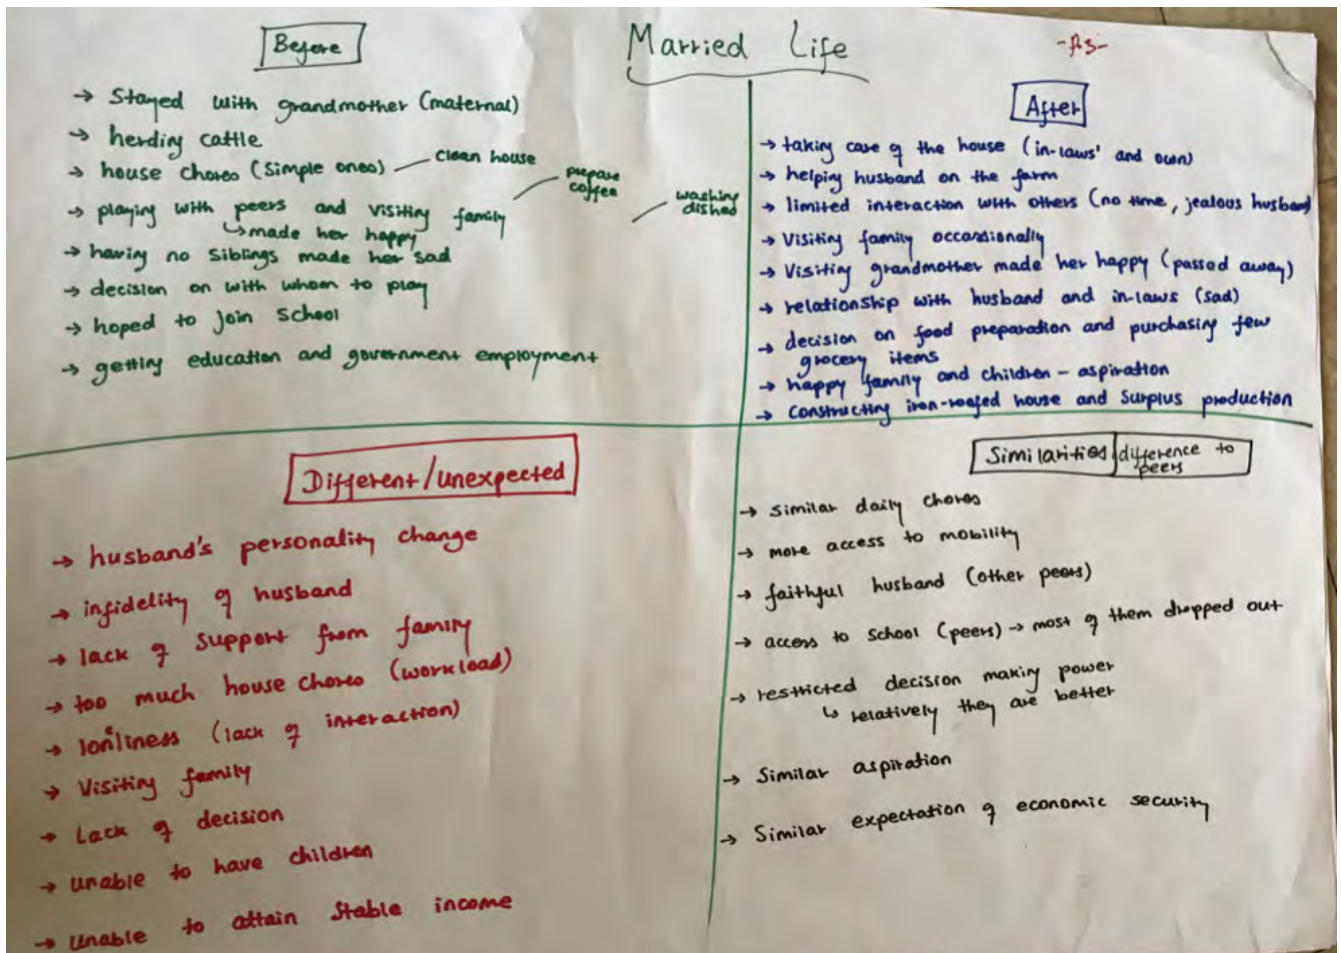 Married Life
-R3-
Before
→ Stayed with grandmother (maternal)
→ herding cattle
→ house chores (Simple ones) — clean house
prepare
coffee
washing
dished
→ playing with peers and visiting family
↳ made her happy
→ having no siblings made her sad
→ decision on with whom to play
→ hoped to join School
→ getting education and government employment
After
→ taking care of the house (in-laws' and own)
→ helping husband on the farm
→ limited interaction with others (no time, jealous husband
→ Visiting family occassionally
→ Visiting grandmother made her happy (passed away)
→ relationship with husband and in-laws (sad)
→ decision on food preparation and purchasing few
grocery items
→ happy family and children - aspiration
→ Constructing iron-roofed house and Surplus production
Different/unexpected
→ husband's personality change
→ infidelity of husband
→ lack of support from family
→ too much house chores (workload)
→ lonliness (lack of interaction)
→ Visiting family
→ Lack of decision
→ unable to have children
→ unable to attain Stable income
Similarities difference to
peers
→ similar daily chores
→ more access to mobility
→ faithful husband (other peers)
→ access to school (peers) → most of them dropped out
→ restricted decision making power
↳ relatively they are better
→ Similar aspiration
→ Similar expectation of economic security